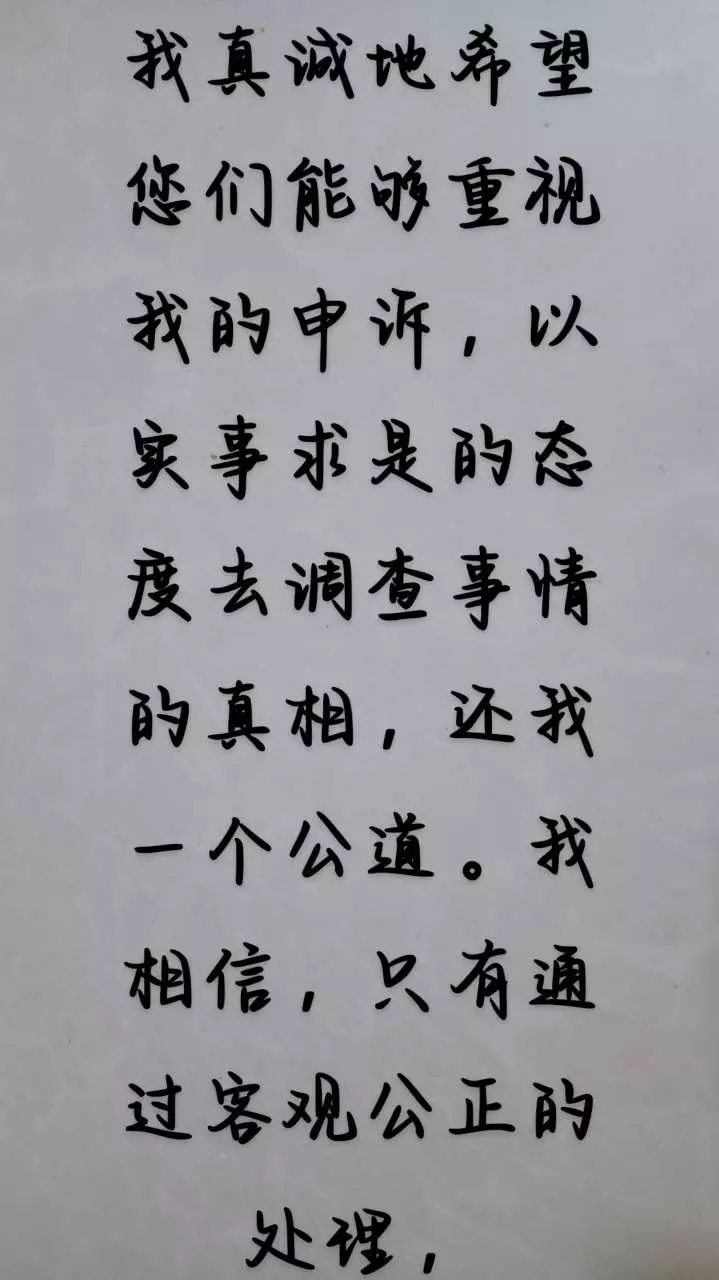 我真诚地希望
您们能够重视
我的申诉，以
实事求是的态
度去调查事情
的真相，还我
一个公道。我
相信，只有通
过客观公正的
处理，